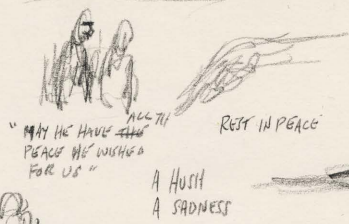 ALL TH
"MAY HE HAVE THE
PEACE HE WISHED
FOR US"
REST IN PEACE
A HUSH
A SADNESS